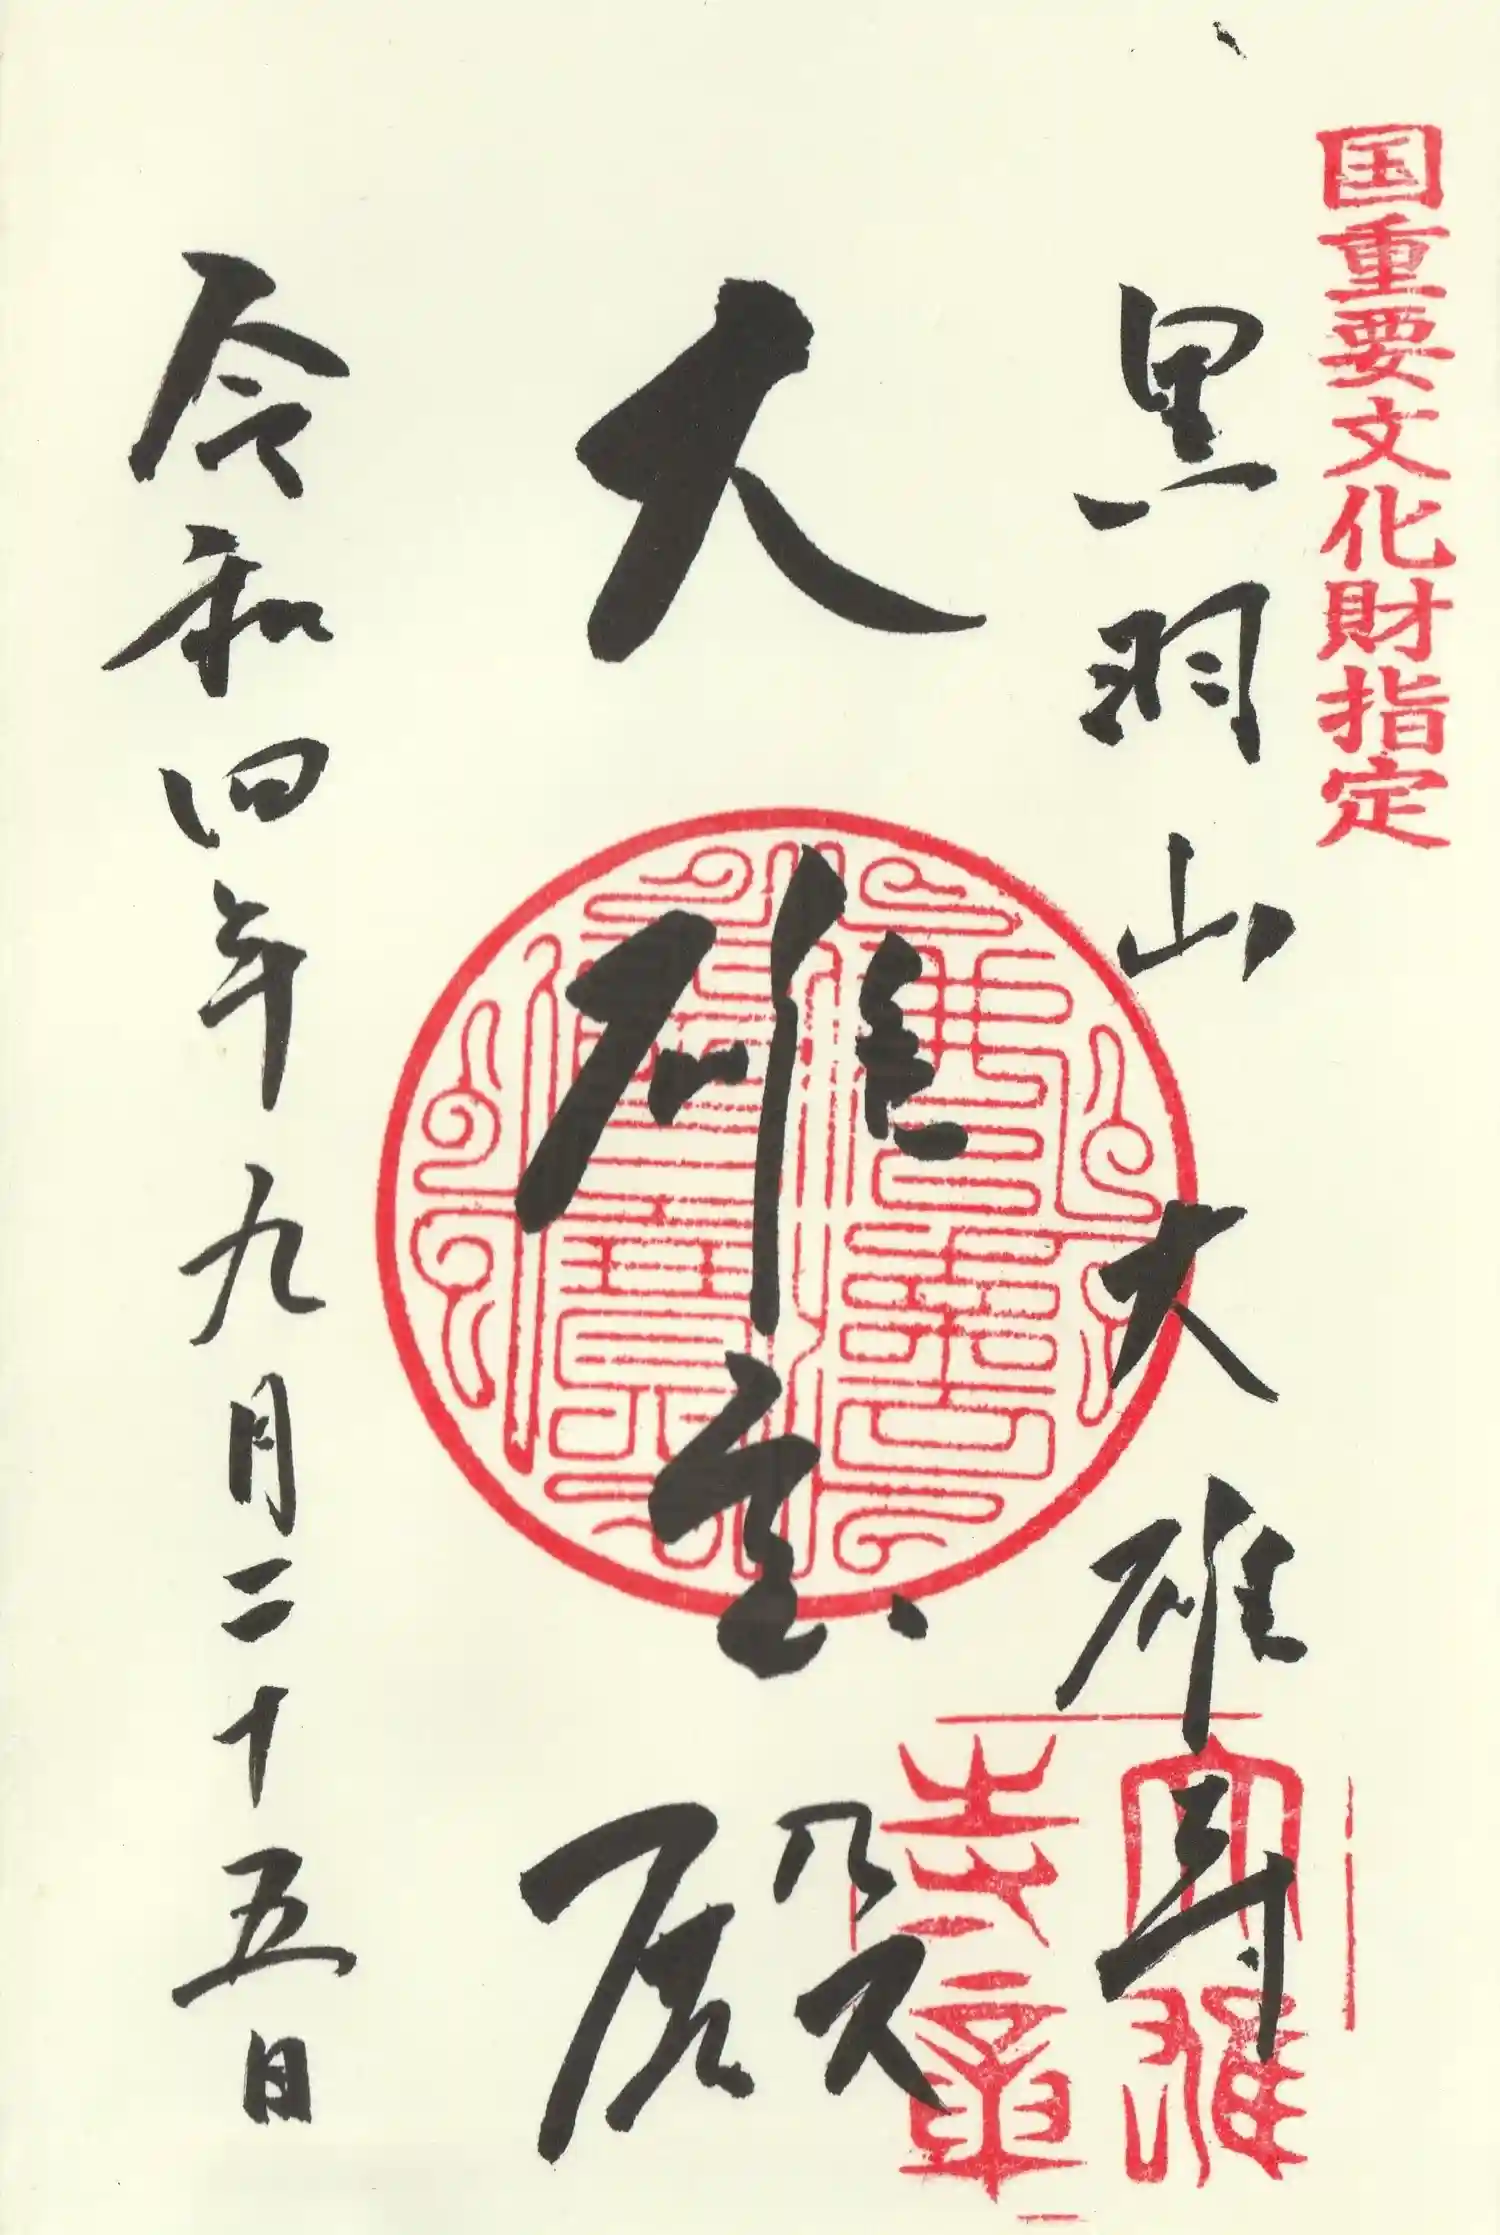 国重要文化財指定
黒羽山 大雄寺
大雄宝殿
令和四年九月二十五日
大雄
寺章